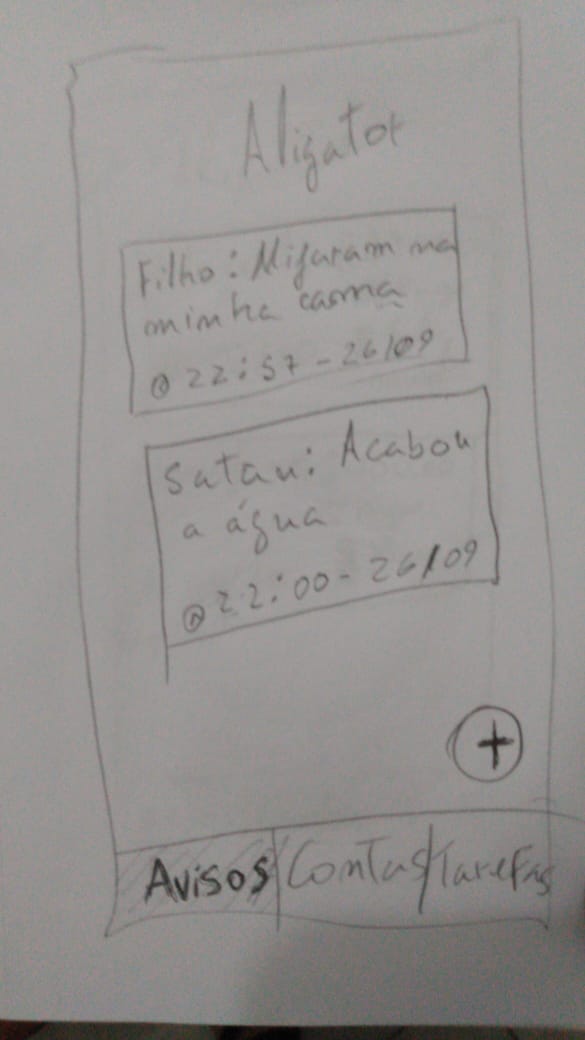 Aligator
Filho: Mijaram na
minha cama
@ 22:57 - 26/09
Satan: Acabou
a água
@ 22:00 - 26/09
+
Avisos Contas Tarefas